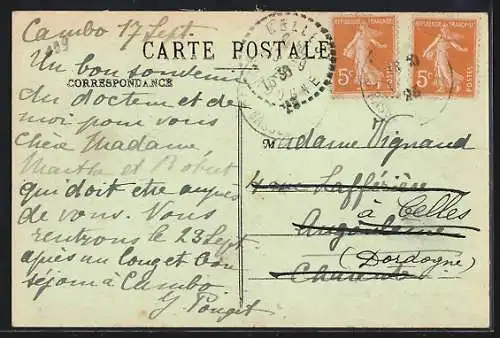 Cambo 17 Sept.
CARTE POSTALE
CORRESPONDANCE
Un bon souvenir
du docteur et de
moi pour vous
Chère Madame,
Marthe et Robert
qui doit être auprès
de vous. Vous
rentrons le 23 Sept
après un long et bon
séjour à Cambo
Y. Pouget
RÉPUBLIQUE FRANÇAISE
5c
POSTES
RÉPUBLIQUE FRANÇAISE
5c
POSTES
CELLES
Madame Vignaud
Lafférière
à Celles
Angoulême
(Dordogne)
Charente